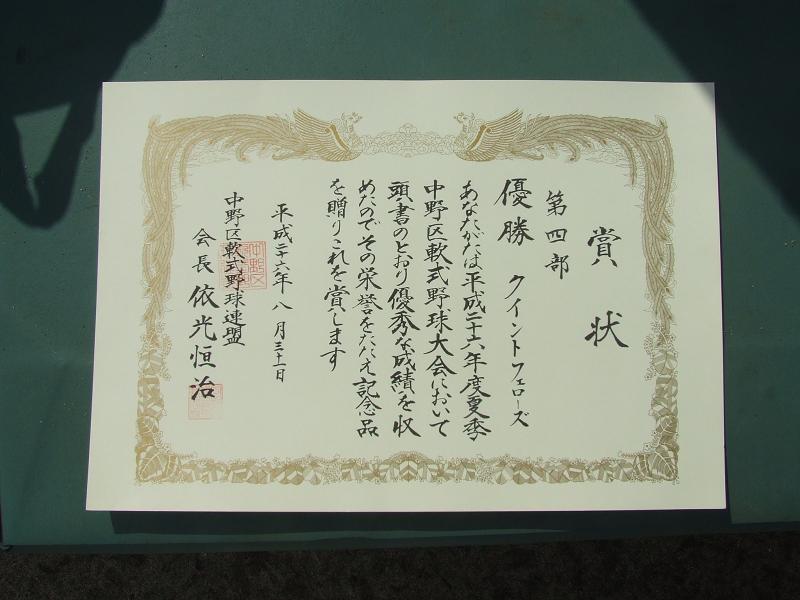 賞状
第四部
優勝 クイントフェローズ
あなたがたは平成二十六年度夏季
中野区軟式野球大会において
頭書のとおり優秀な成績を収
めたのでその栄誉をたたえ記念品
を贈りこれを賞します
平成二十六年八月三十一日
中野区軟式野球連盟
会長 依光恒治